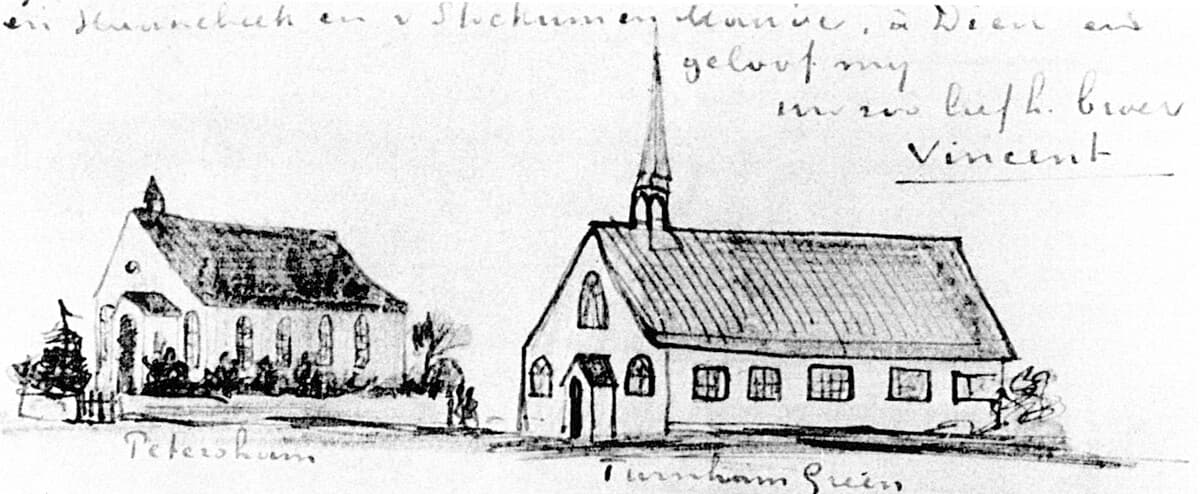 en v Stockum en Mauve, à Dien en
geloof my
uw zoo liefh. broer
Vincent
Petersham
Turnham Green